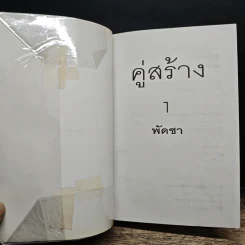 คู่สร้าง
1
พัดชา